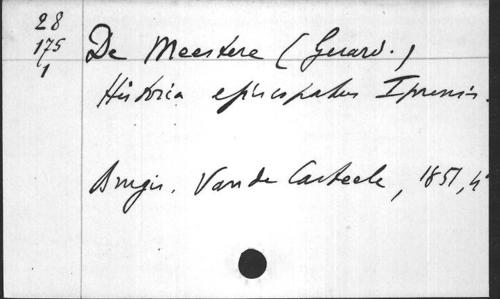 28
175
1
De Meestere (Gerard.)
Historia episcopatus Iprensis.
Brugis. Van de Casteele, 1851, 4°